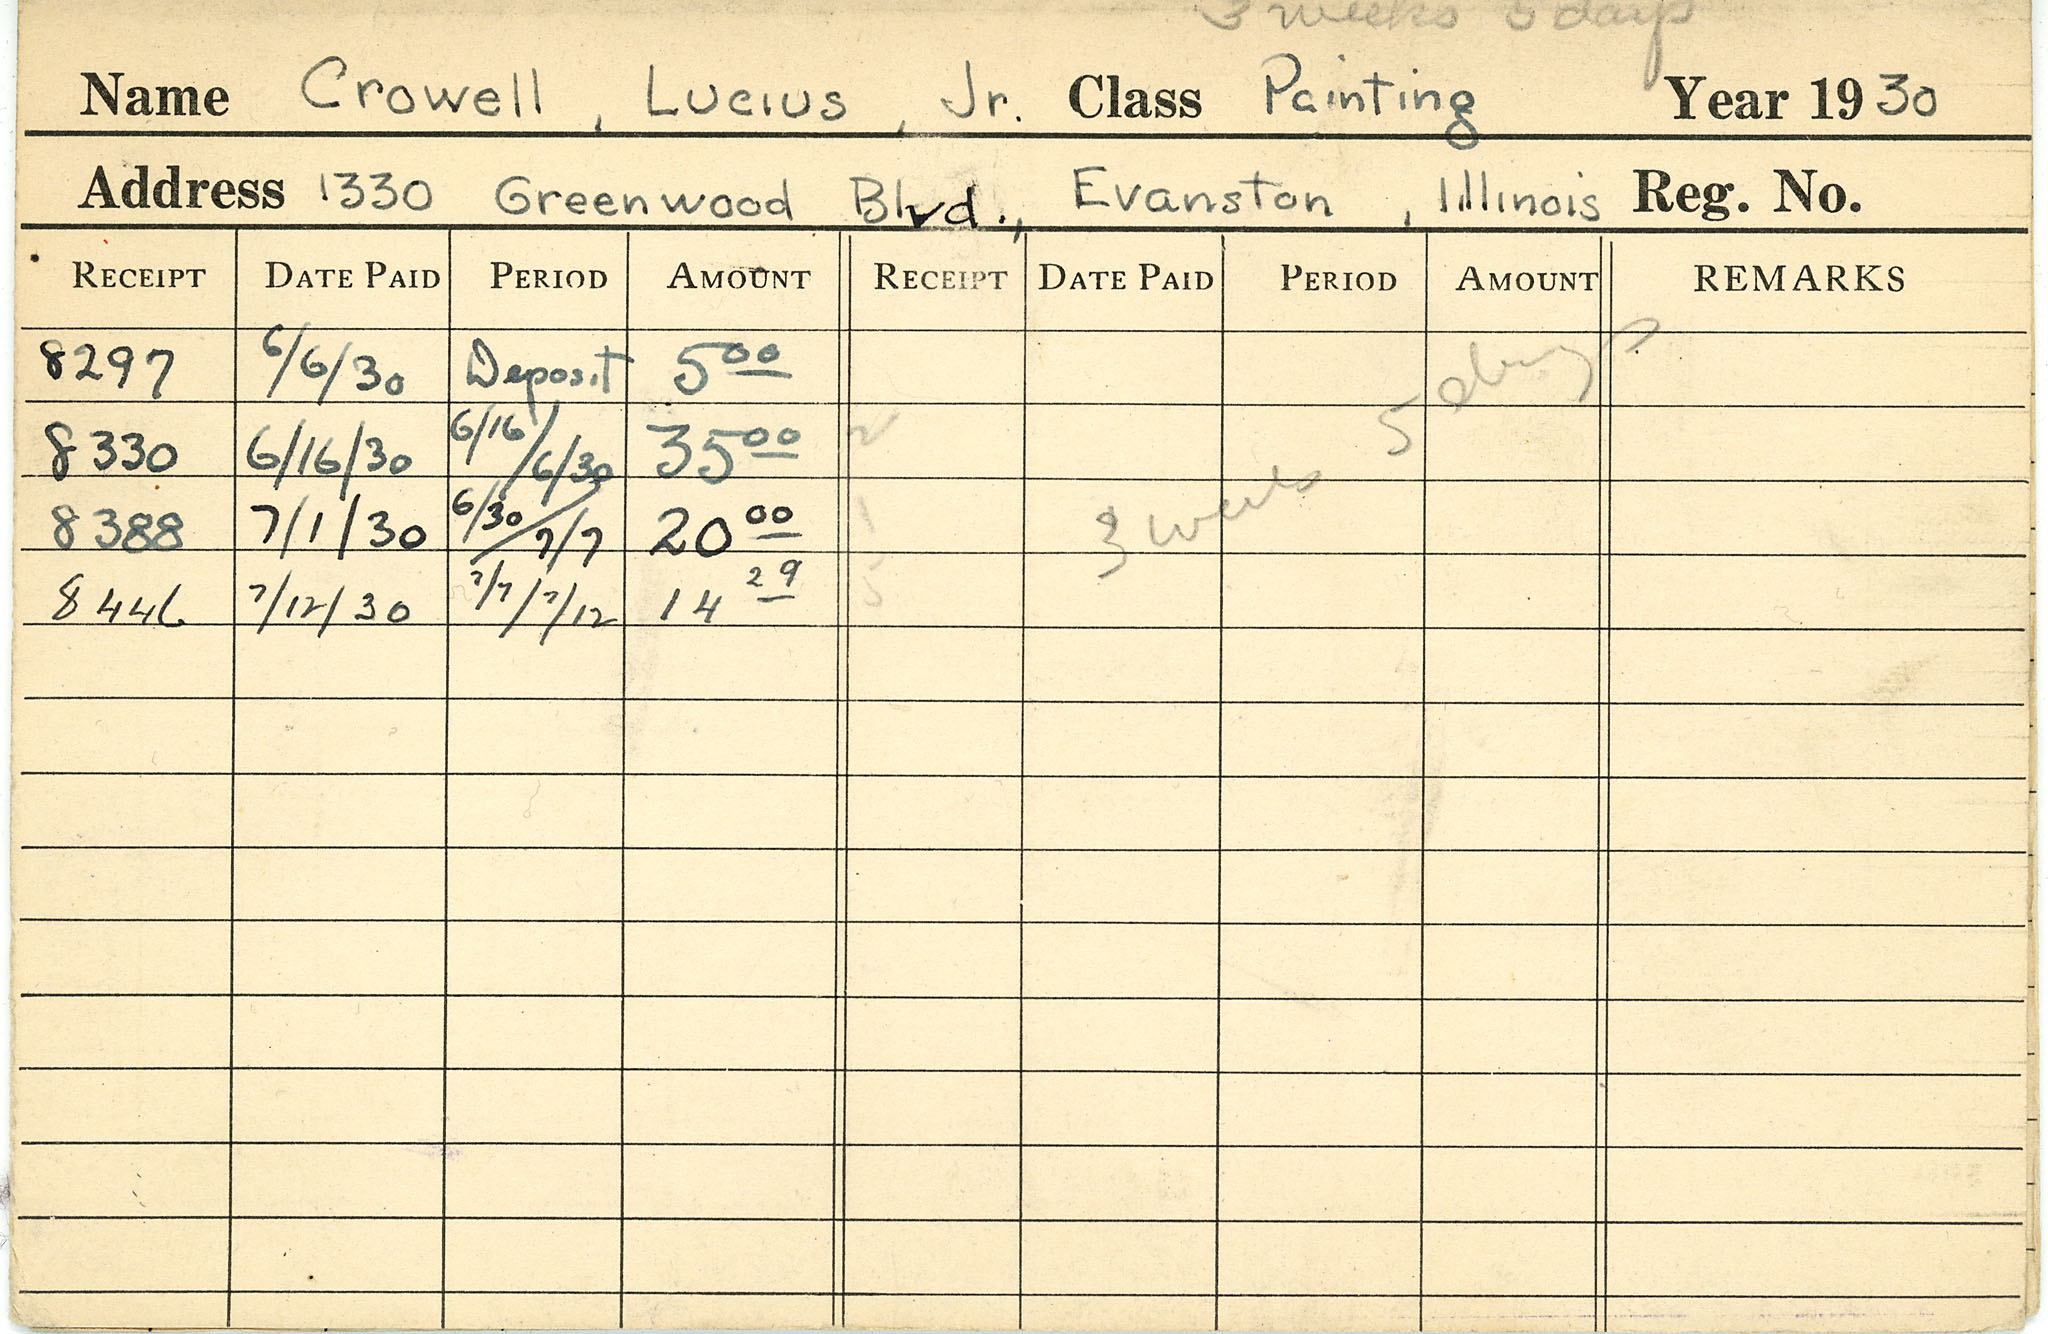 3 weeks 5 days
Name Crowell, Lucius, Jr. Class Painting Year 1930
Address 1330 Greenwood Blvd., Evanston, Illinois Reg. No.
RECEIPT DATE PAID PERIOD AMOUNT RECEIPT DATE PAID PERIOD AMOUNT REMARKS
8297 6/6/30 Deposit 5 00
8330 6/16/30 6/16/6/30 35 00 2
8388 7/1/30 6/30/7/7 20 00 1
8446 7/12/30 7/7/7/12 14 29 5
3 weeks 5 days